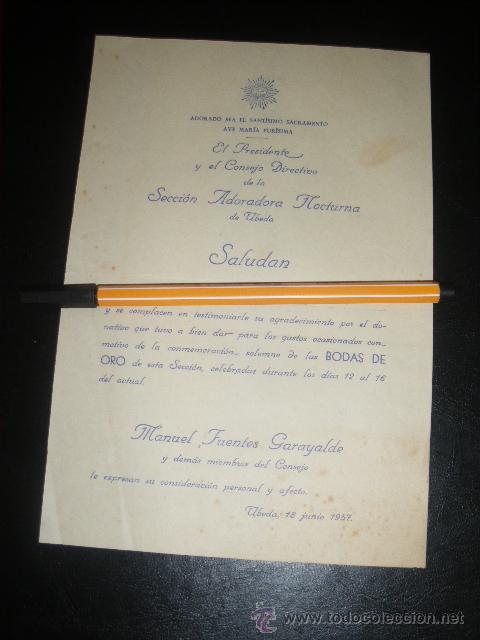 ADORADO SEA EL SANTÍSIMO SACRAMENTO
AVE MARÍA PURÍSIMA
El Presidente
y el Consejo Directivo
de la
Sección Adoradora Nocturna
de Ubeda
Saludan
y se complacen en testimoniarle su agradecimiento por el do-
nativo que tuvo a bien dar para los gastos ocasionados con
motivo de la conmemoración solemne de las BODAS DE
ORO de esta Sección, celebradas durante los días 12 al 16
del actual.
Manuel Fuentes Garayalde
y demás miembros del Consejo
le expresan su consideración personal y afecto.
Ubeda, 18 junio 1957.
todocoleccion
www.todocoleccion.net